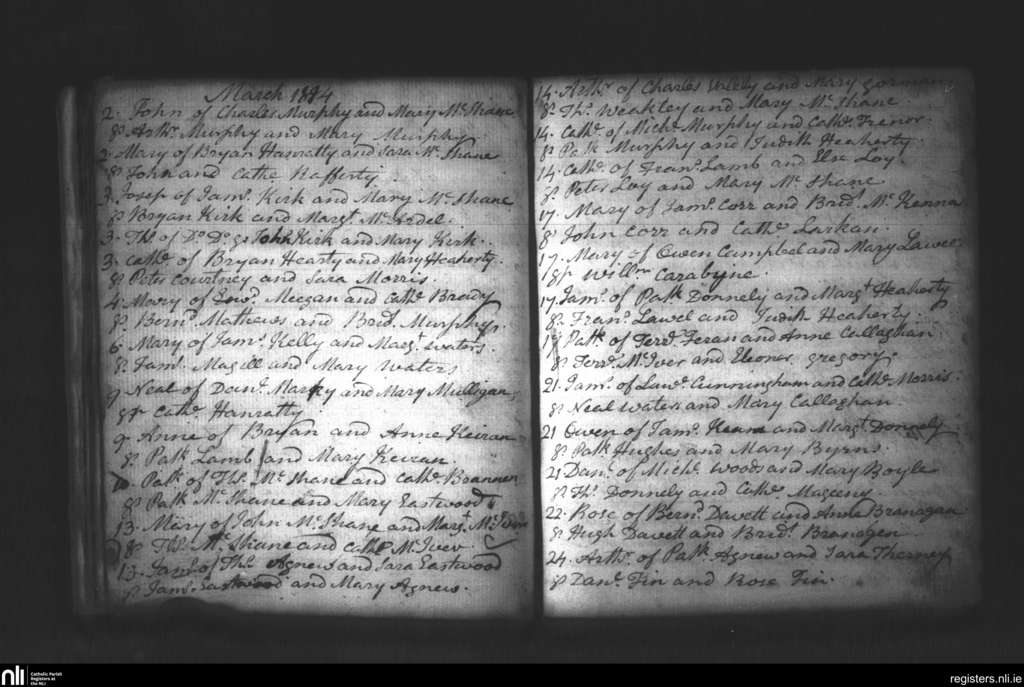 March 1814
2. John of Charles Murphy and Mary McShane
Sp. Arthr. Murphy and Mary Murphy
2. Mary of Bryan Hanratty and Sara McShane
Sp. John and Cathe Rafferty
2. Josep of Jams. Kirk and Mary McShane
Sp. Bryan Kirk and Margt. McArdel.
3. Ths. of Do. Do. Sp. John Kirk and Mary Kirk.
3. Cathe. of Bryan Hearty and Mary Heaherty.
Sp. Peter Courtney and Sara Morris.
4. Mary of Meegan and Cathe. Brady
Sp. Bernd. Mathews and Bridt. Murphy.
6. Mary of Jams. Kelly and Margt. Waters.
Sp. Jams. Magill and Mary Waters
9 Neal of Danl. Harky and Mary Mulligan
Spr Cathe. Hanratty
9 Anne of Bryan and Anne Keiran
Sp. Patk. Lamb and Mary Keiran.
Patk. of Ths. McShane and Cathe. Brannen
Sp. Patk. McShane and Mary Eastwood
13. Mary of John McShane and Margt. McIver
Sp. Ths. McShane and Cathe McIver
13. Jams. of Ths. Agnew and Sara Eastwood
Sp. Jams. Eastwood and Mary Agnew.
14. Arthr. of Charles and Mary Gorman
Sp. Ths. Weakley and Mary McShane.
14. Cathe. of Michl. Murphy and Cathe. Trenor.
Sp. Patk Murphy and Judith Heaherty
14. Cathe. of Frans. Lamb and Else Loy.
Sp. Peter Loy and Mary McShane
17. Mary of Jams. Corr and Bridt. McKenna
Sp. John Corr and Cathe. Larkan.
17. Mary of Owen Campbel and Mary Lawel
Spr Willm. Carabyne.
17. Jams. of Patk Donnely and Margt Heaherty
Sp. Frans. Lawel and Judith Heaherty.
19 Patk. of Ferdd. Feran and Anne Callaghan
Sp. Ferdd. McIver and Eleoner Gregory
21. Jams. of Lawe. Cunningham and Cathe. Morris.
Sp. Neal Waters and Mary Callaghan
21 Owen of Jams. and Margt. Donnely
Sp. Patk Hughes and Mary Byrns.
21 Danl. of Michl. Woods and Mary Boyle
Sp. Ths. Donnely and Cathe. Mageeny.
22. Rose of Bernd. Davett and Anne Branagan
Sp. Hugh Davett and Bridt. Branagen
24. Arthr. of Patk. Agnew and Sara Therney
Sp. Danl. Fin and Rose Fin.
nli
Catholic Parish
Registers at
the NLI
registers.nli.ie